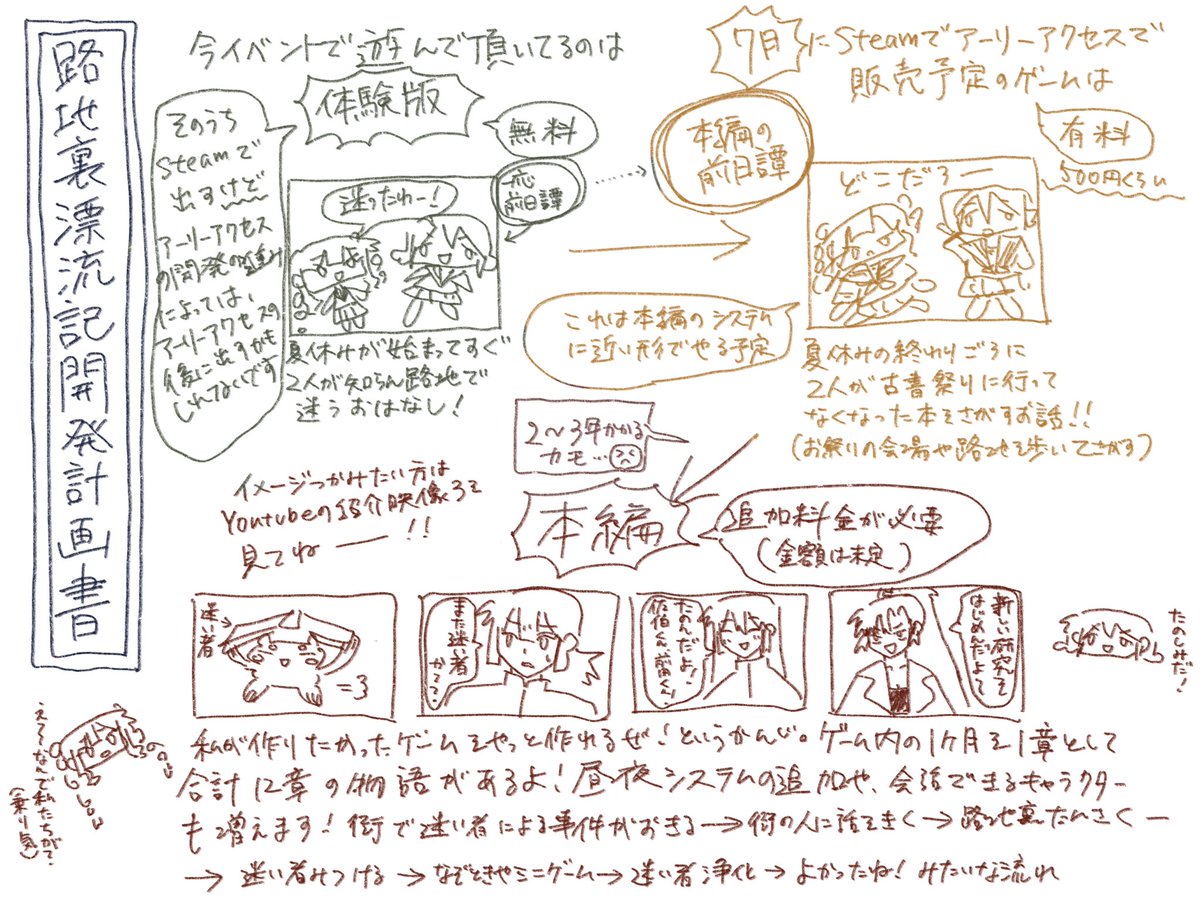 路地裏漂流記開発計画書
今イベントで遊んで頂いてるのは
体験版
無料
一応
前日譚
そのうち
Steamで
出すけど
アーリーアクセス
の開発の
によっては、
アーリーアクセスの
後に出すかも
しれないです
迷ったねー!
夏休みが始まってすぐ
2人が知らん路地で
迷うおはなし!
7月にSteamでアーリーアクセスで
販売予定のゲームは
本編の
前日譚
有料
500円くらい
どこだろー
これは本編のシステム
に近い形でやる予定
夏休みの終わりごろに
2人が古書祭りに行って
なくなった本をさがすお話!!
(お祭りの会場や路地を歩いてさがす)
2〜3年かかる
カモ…
本編
追加料金が必要
(金額は未定)
イメージつかみたい方は
Youtubeの紹介映像みて
見てねー!!
迷い者→
=3
また迷い者
かてて
たのんだよ!
佐伯くん、前備くん!
新しい研究を
はじめんだよって
たのしみだ!
え〜なんで私たちがて
(乗り気)
私が作りたかったゲームをやっと作れるぜ!というかんじ。ゲーム内の1ヶ月を1章として
合計12章の物語があるよ!昼夜システムの追加や、会話できるキャラクター
も増えます!街で迷い者による事件がおきる→街の人に話をきく→路地裏たんさくー
→迷い者みつける→なぞときやミニゲーム→迷い者浄化→よかったね!みたいな流れ